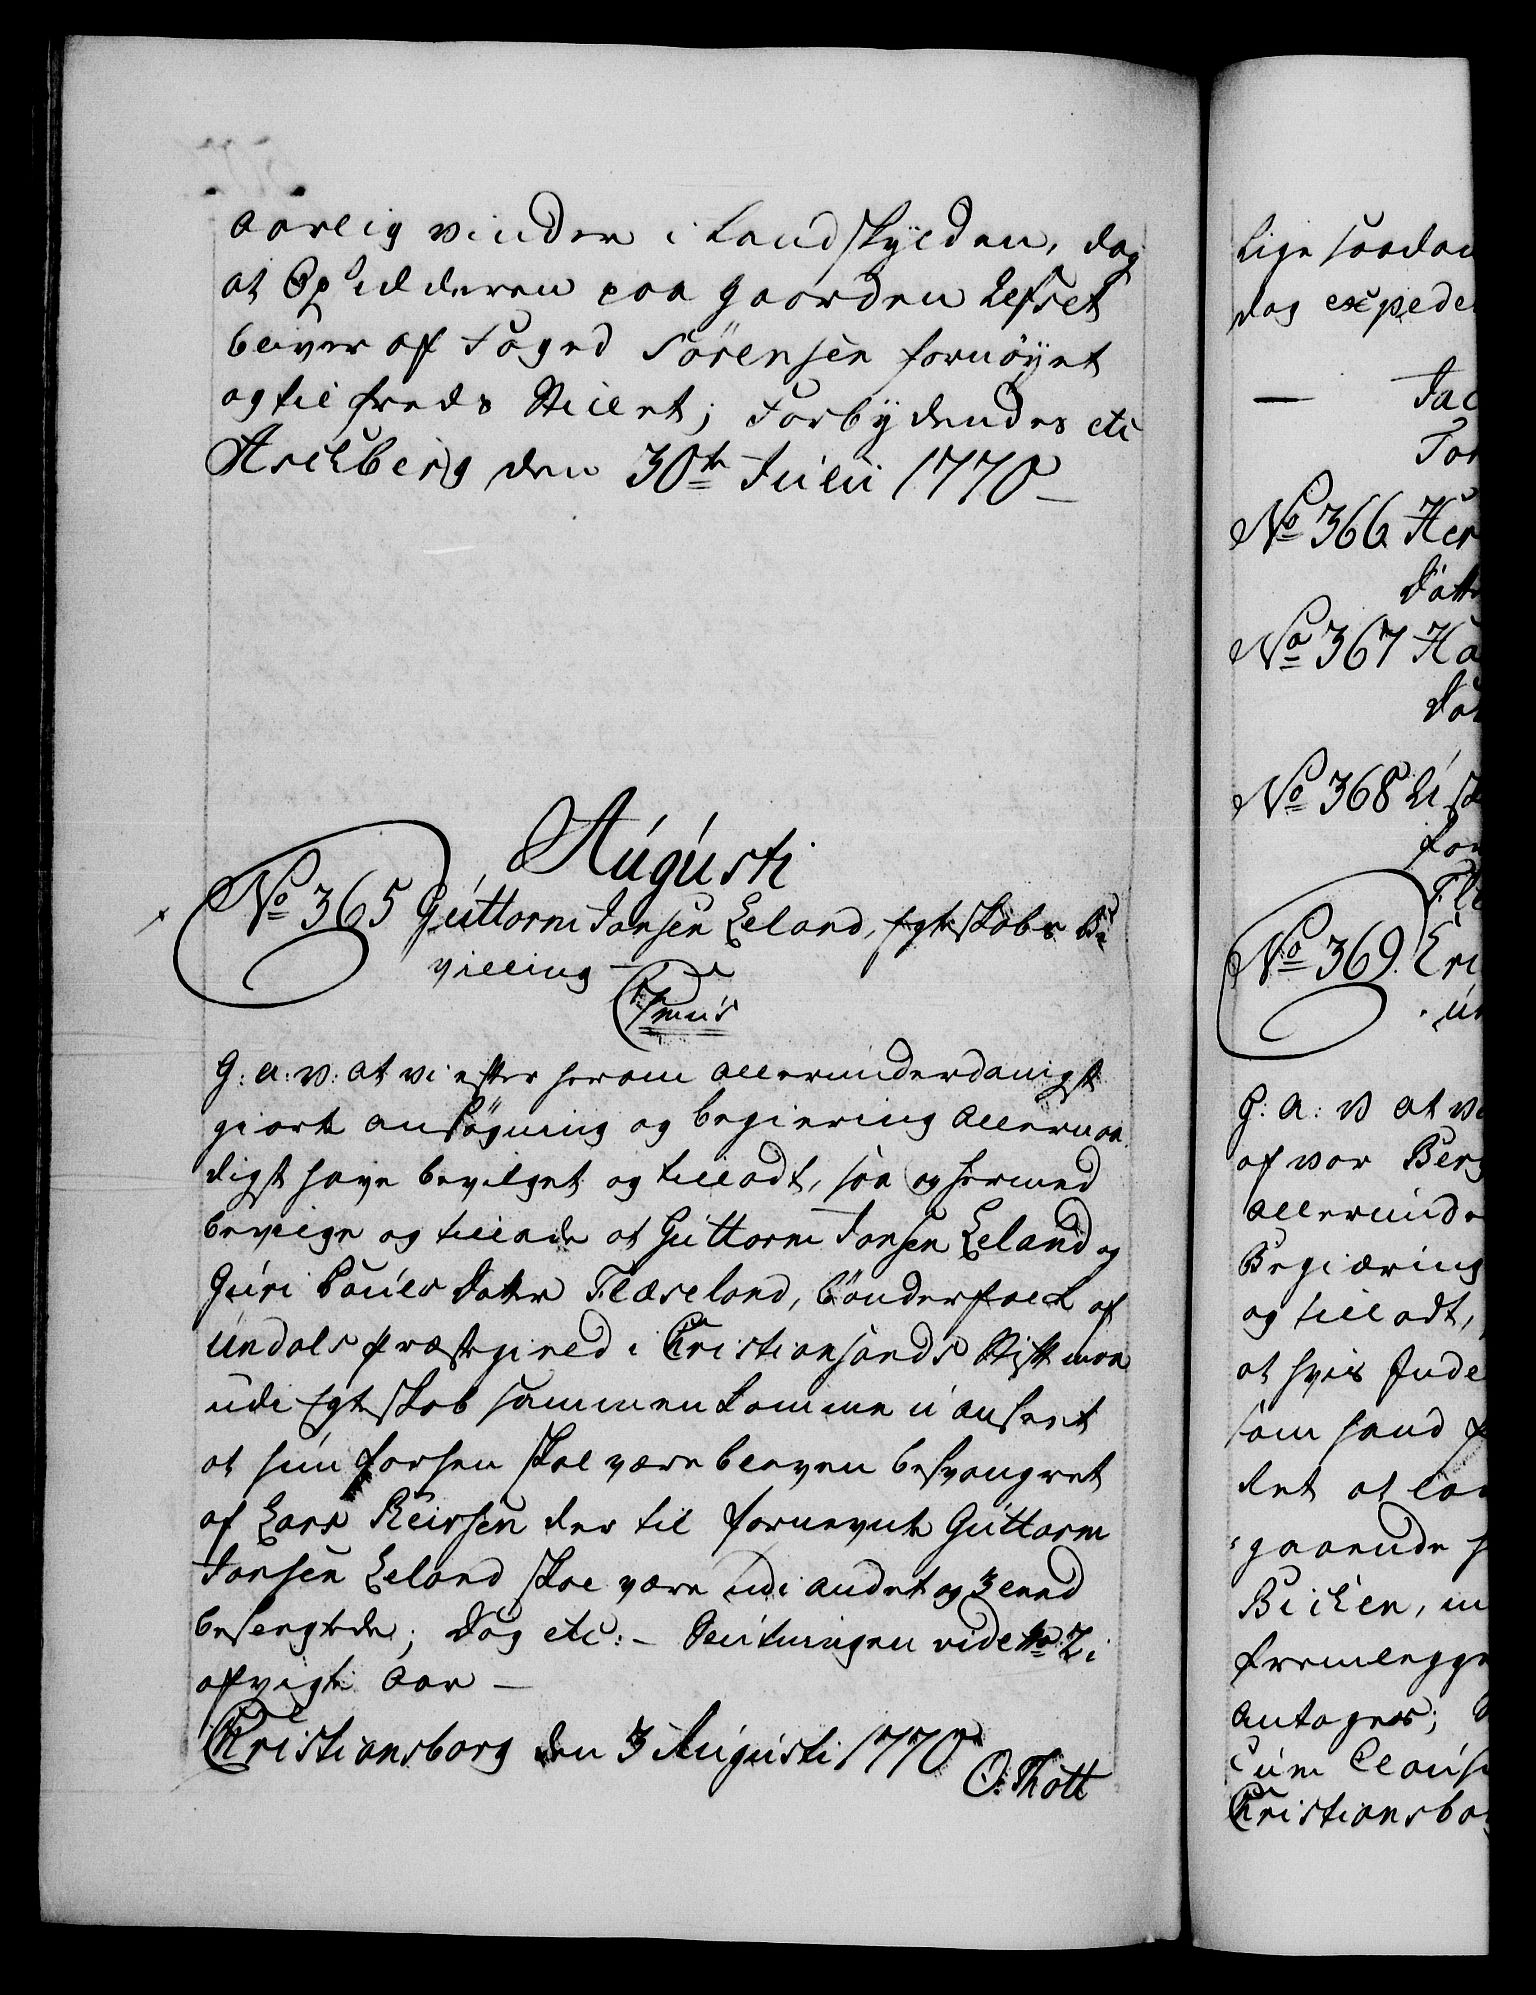 aarlig vinder i Landskylden, dog
at Opsidderen paa Gaarden Lefset
bliver af Foged Sørensen fornøyet
og tilfreds stillet; Forbydendes etc
Ascheberg den 30te Julii 1770
Augusti
No 365 Guttorm Jansen Leland, Egteskabs Be
villing
Prmis
G: a: v: at vi efter herom allerunderdanigst
giort ansøgning og begiering allernaa
digst have bevilget og tilladt, saa og hermed
bevilge og tillade at Guttorm Jansen Leland og
Guri Poulsdatter Flæseland, bønderfolck af
Undals præstegield i Christiansands Stift maa
udi Egteskab sammenkomme uanseet
at hun forhen skal være bleven besvangret
af Lars Reiersen der til fornevnte Guttorm
Jansen Leland skal være udi andet og 3 leed
beslegtede; Dog etc: - Slutningen vide No: 2 i
afvigte Aar -
Christiansborg den 3 Augusti 1770
O. Thott
lige saadan
dog expede
Jac
Tor
No 366 Her
datt
No 367 Ha
dat
No 368
for
No 369. Eri
G: a: v at vi
af vor Berg
allerunde
Begiæring
og tilladt,
at hvis Inde
som fand
det at lov
gaaende
antages;
Cum Claus
Christiansbor